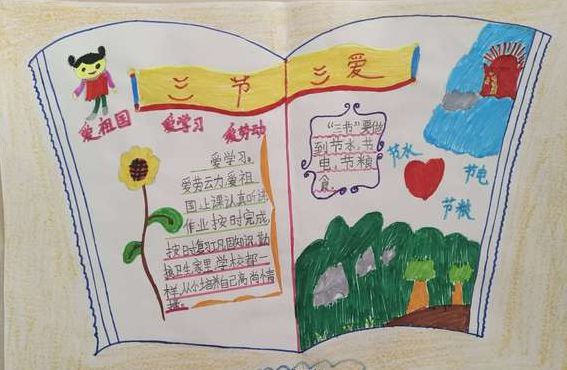 三节三爱
爱祖国 爱学习 爱劳动
爱学习。
爱劳云力,爱祖
国上课认真听讲,
作业按时完成,
按时复习巩固知识,勤
搞卫生家里学校都一
样,从小培养自己高尚情
"三节"要做
到节水,节
电,节粮
食。
节水
节电
节粮